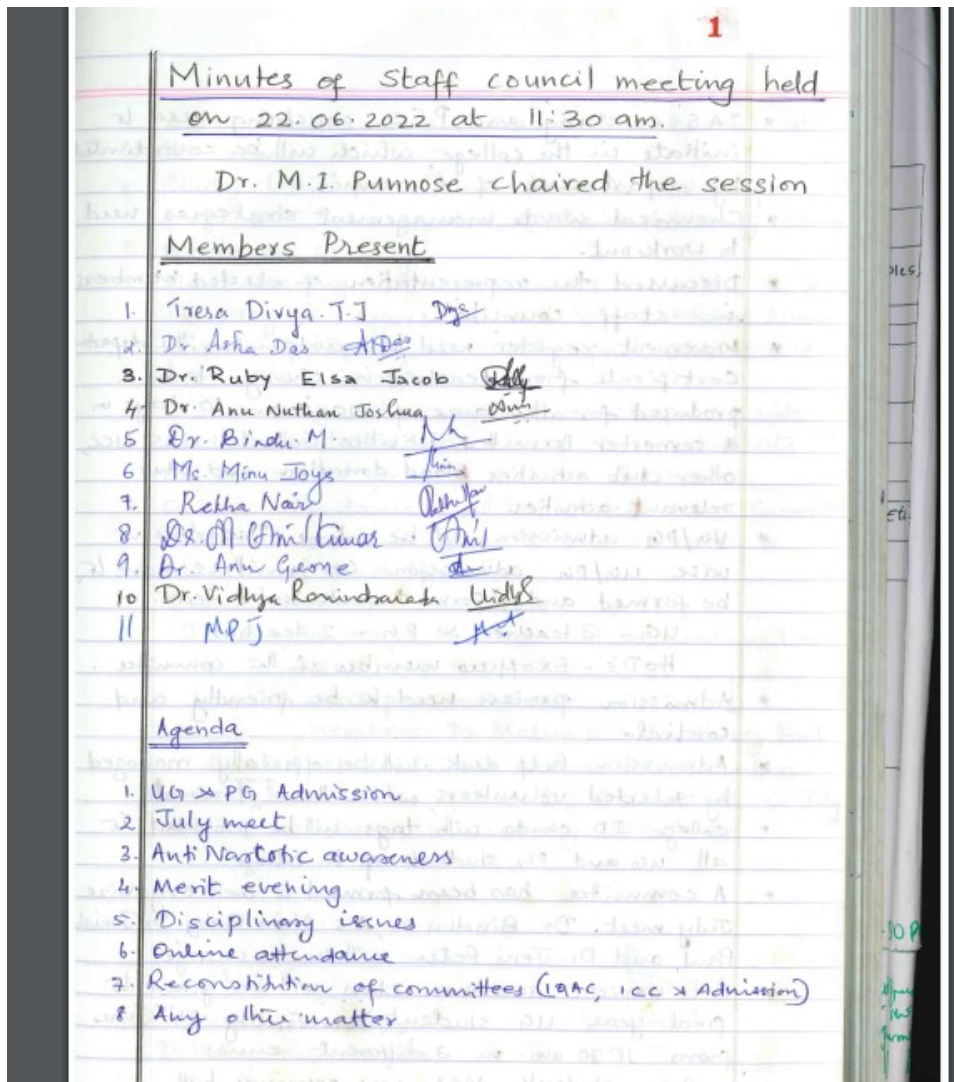 1
Minutes of Staff council meeting held
on 22.06.2022 at 11:30 am.
Dr. M.I. Punnose chaired the session
Members Present
1. Tresa Divya. T.J
2. Dr. Asha Das ADas
3. Dr. Ruby Elsa Jacob
4. Dr. Anu Nuthan Joshua
5 Dr. Bindu M
6 Ms. Minu Joys
7. Rekha Nair
8 Dr. Anil Kumar Anil
9. Dr. Anu
10 Dr. Vidhya Vidhya
11 MPJ
Agenda
1. UG & PG Admission
2 July meet
3. Anti Narcotic awareness
4. Merit evening
5. Disciplinary issues
6. Online attendance
7. Reconstitution of committees (IQAC, ICC & Admission)
8 Any other matter